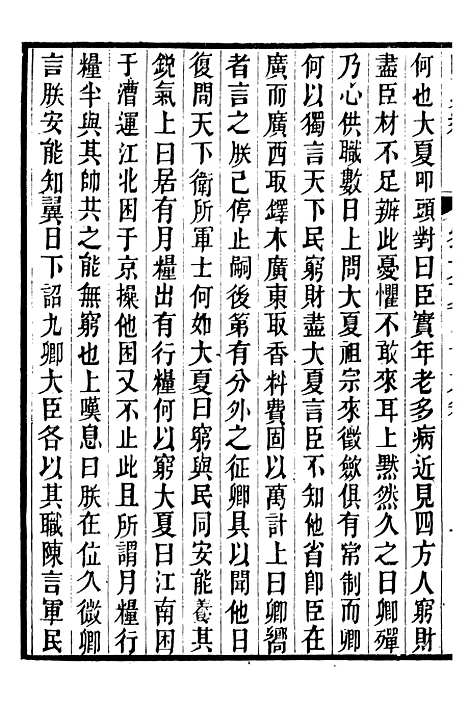 何也大夏叩頭對曰臣實年老多病近見四方人窮財
盡臣材不足辦此憂懼不敢來耳上黙然久之曰卿殫
乃心供職數日上問大夏祖宗來徵斂俱有常制而卿
何以獨言天下民窮財盡大夏言臣不知他省卽臣在
廣而廣西取鐸木廣東取香料費固以萬計上曰卿嚮
者言之朕已停止嗣後第有分外之征卿具以聞他日
復問天下衛所軍士何如大夏曰窮與民同安能養其
鋭氣上曰居有月糧出有行糧何以窮大夏曰江南困
于漕運江北困于京操他困又不止此且所謂月糧行
糧半與其帥共之能無窮也上嘆息曰朕在位久微卿
言朕安能知翼日下詔九卿大臣各以其職陳言軍民